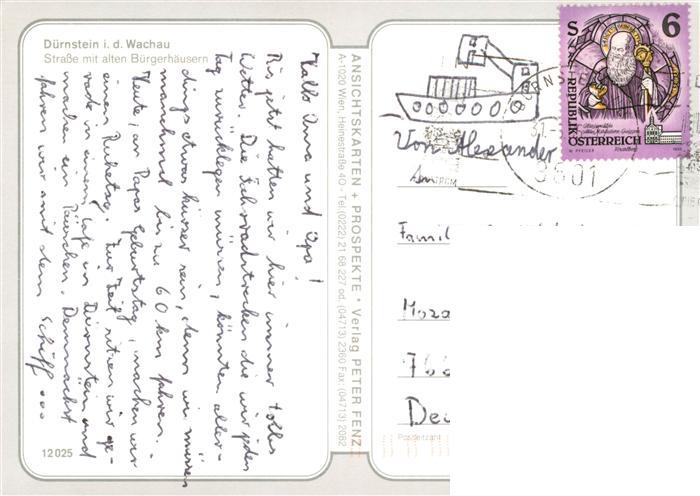 Dürnstein i. d. Wachau
Straße mit alten Bürgerhäusern
Hallo Oma und Opa!
Bis jetzt hatten wir hier immer tolles
Wetter. Die Fahrradstrecken die wir jeden
Tag zurücklegen müssen, könnten aller-
dings etwas kürzer sein, denn wir müssen
manchmal bis zu 60 km fahren.
Heute, an Papas Geburtstag, machen wir
einen Ruhetag. Zur Zeit sitzen wir ge-
rade in einem Cafe in Dürnstein und
machen ein Päuschen. Demnächst
fahren wir mit dem Schiff...
12025
ANSICHTSKARTEN + PROSPEKTE * Verlag PETER FENZ
A-1020 Wien, Heinestraße 40 - Tel. (0222) 21 68 227 od. (04713) 2360 Fax: (04713) 2082
Von Alexander
S 6
REPUBLIK
ÖSTERREICH
3601
Famil
Moza
766
Deu
Postleitzahl